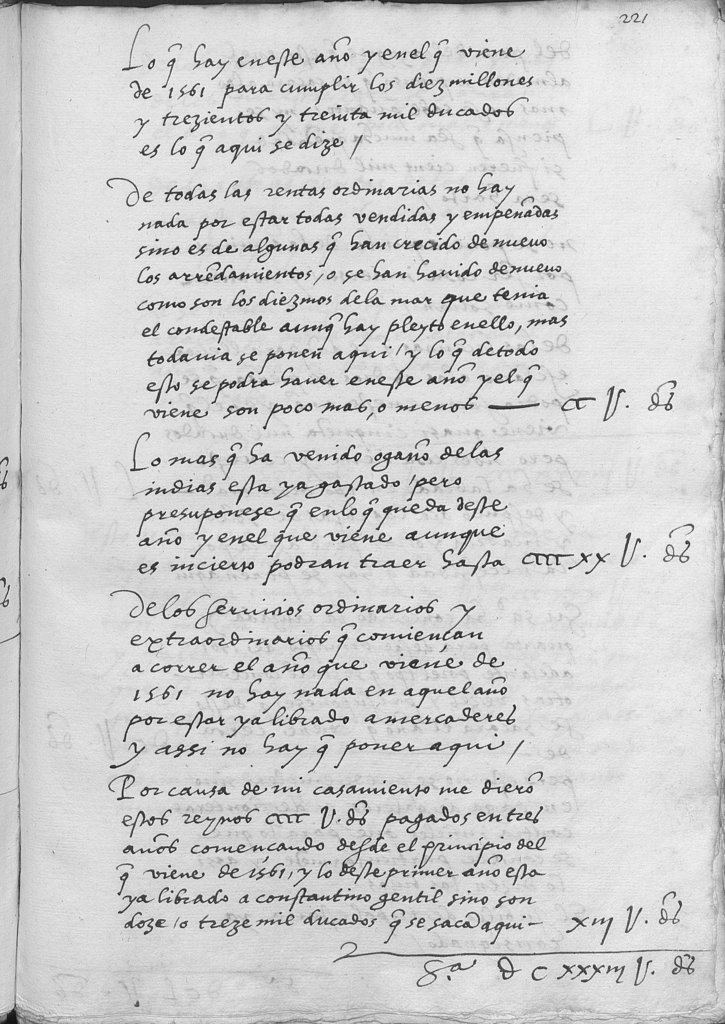 221
Lo q̃ hay en este año y en el q̃ viene
de 1561 para cumplir los diez millones
y trezientos y treinta mil ducados
es lo q̃ aqui se dize /
De todas las rentas ordinarias no hay
nada por estar todas vendidas y empeñadas
sino es de algunas q̃ han crecido de nuevo
los arrẽdamientos, o se han havido de nuevo
como son los diezmos de la mar que tenia
el condestable aunq̃ hay pleyto en ello, mas
todavia se ponen aqui / y lo q̃ de todo
esto se podra haver en este año y el q̃
viene son poco mas, o menos — CC V. dos
Lo mas q̃ ha venido ogaño de las
indias esta ya gastado / pero
presuponese q̃ en lo q̃ queda deste
año y en el que viene aunque
es incierto podran traer hasta CCCC XX V. dos
De los servicios ordinarios y
extraordinarios q̃ comiençan
a correr el año que viene de
1561 no hay nada en aquel año
por estar ya librado a mercaderes
y assi no hay q̃ poner aqui /
Por causa de mi casamiento me dierõ
estos reynos CCC V. dos pagados en tres
años començando desde el principio del
q̃ viene de 1561, y lo deste primer año esta
ya librado a constantino gentil sino son
doze / o treze mil ducados q̃ se sacã aqui – XIII V. dos
Sa D C XXXIII V. dos